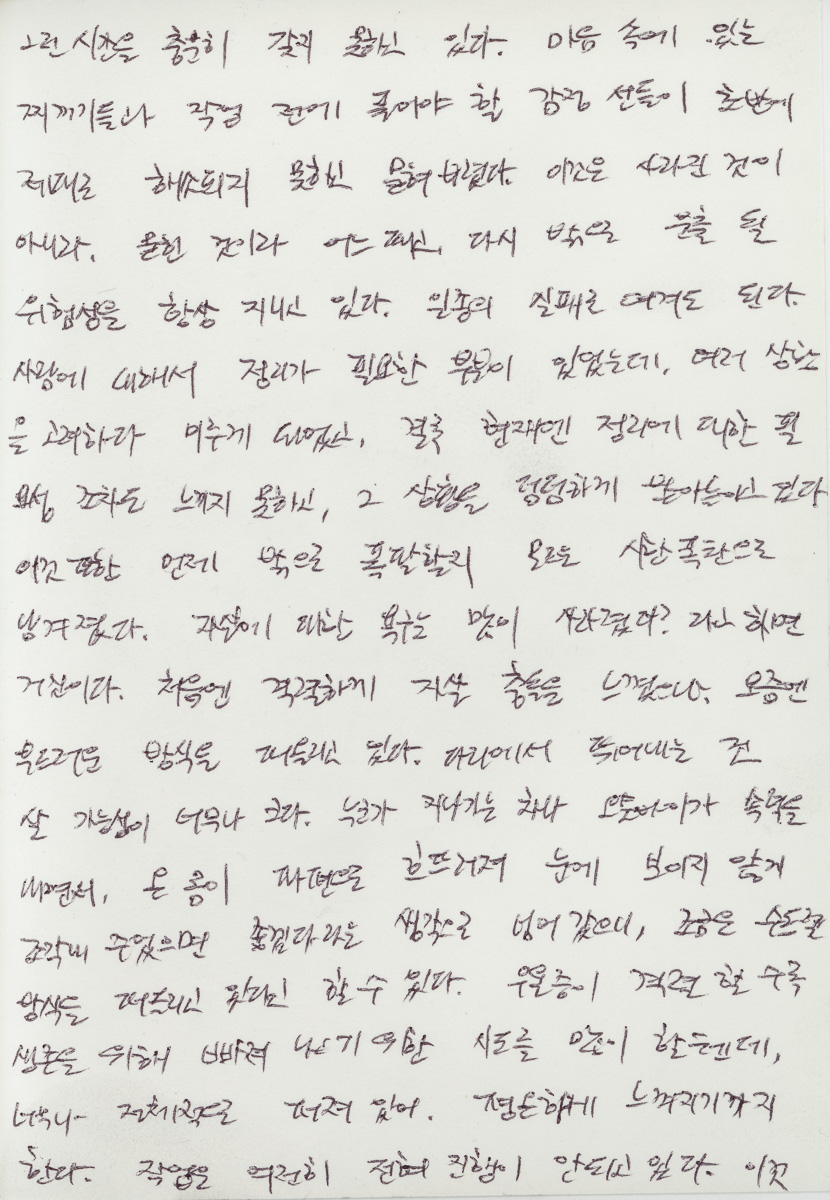 그런 시간을 충분히 갖지 못하고 있다. 마음 속에 있는
찌꺼기들과 작업 전에 풀어야 할 감정 선들이 초반에
제대로 해소되지 못하고 묻혀 버렸다. 이것은 사라진 것이
아니라, 묻힌 것이라 어느 때고, 다시 밖으로 분출 될
위험성을 항상 지니고 있다. 일종의 실패로 여겨도 된다.
사랑에 대해서 정리가 필요한 부분이 있었는데, 여러 상황
을 고려하다 미루게 되었고, 결국 현재엔 정리에 대한 필
요성 조차도 느끼지 못하고, 그 상황을 덤덤하게 받아들이고 있다
이것 또한 언제 밖으로 폭발할지 모르는 시한폭탄으로
남겨졌다. 자살에 대한 욕구는 많이 사라졌다? 라고 하면
거짓이다. 처음엔 격렬하게 자살 충동을 느꼈으나, 요즘엔
부드러운 방식을 떠올리고 있다. 다리에서 뛰어내리는 건
살 가능성이 너무나 크다. 누군가 지나가는 차나 오토바이가 속력을
내면서, 온 몸이 파편으로 흐뜨러져 눈에 보이지 않게
조각내 주었으면 좋겠다라는 생각으로 넘어 갔으니, 조금은 수동적
방식을 떠올리고 있다고 할 수 있다. 우울증이 격렬 할 수록
생존을 위해 빠져 나오기 위한 시도를 많이 할텐데,
너무나 전체적으로 퍼져 있어. 평온하게 느껴지기까지
한다. 작업은 여전히 전혀 진행이 안되고 있다. 이것